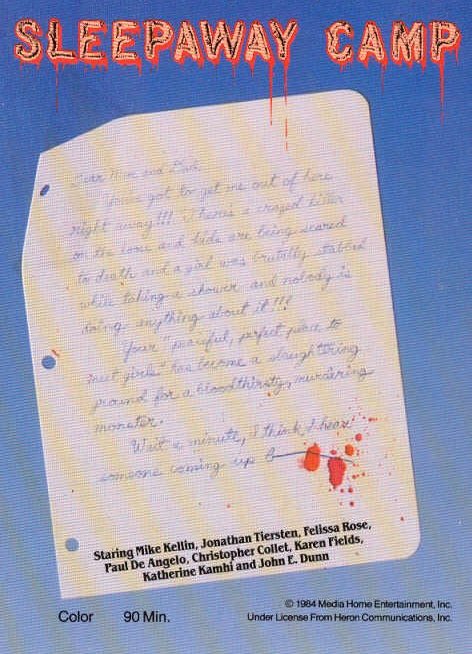 SLEEPAWAY CAMP
Dear Mom and Dad,
You've got to get me out of here
right away!!! There's a crazed killer
on the loose and kids are being scared
to death and a girl was brutally stabbed
while taking a shower and nobody is
doing anything about it!!!
Your "peaceful, perfect place to
meet girls" has become a slaughtering
ground for a bloodthirsty, murdering
monster.
Wait a minute, I think I hear
someone coming up b
Staring Mike Kellin, Jonathan Tiersten, Felissa Rose,
Paul De Angelo, Christopher Collet, Karen Fields,
Katherine Kamhi and John E. Dunn
Color 90 Min.
© 1984 Media Home Entertainment, Inc.
Under License From Heron Communications, Inc.